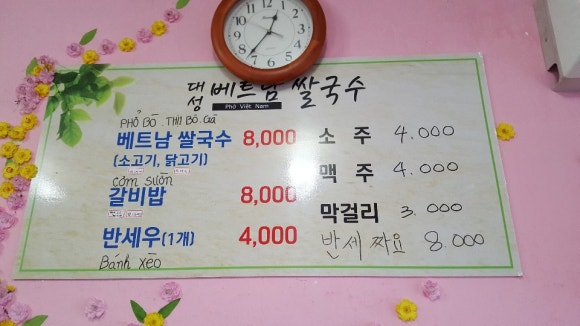 대성 베트남 쌀국수
Phở Việt Nam
PHỞ BÒ. THỊ BÒ. GÀ
베트남 쌀국수 8,000
(소고기, 닭고기)
CƠM SƯỜN
갈비밥 8,000
반세우(1개) 4,000
Bánh xèo
소 주 4.000
맥 주 4.000
막걸리 3.000
반세짜요 8.000